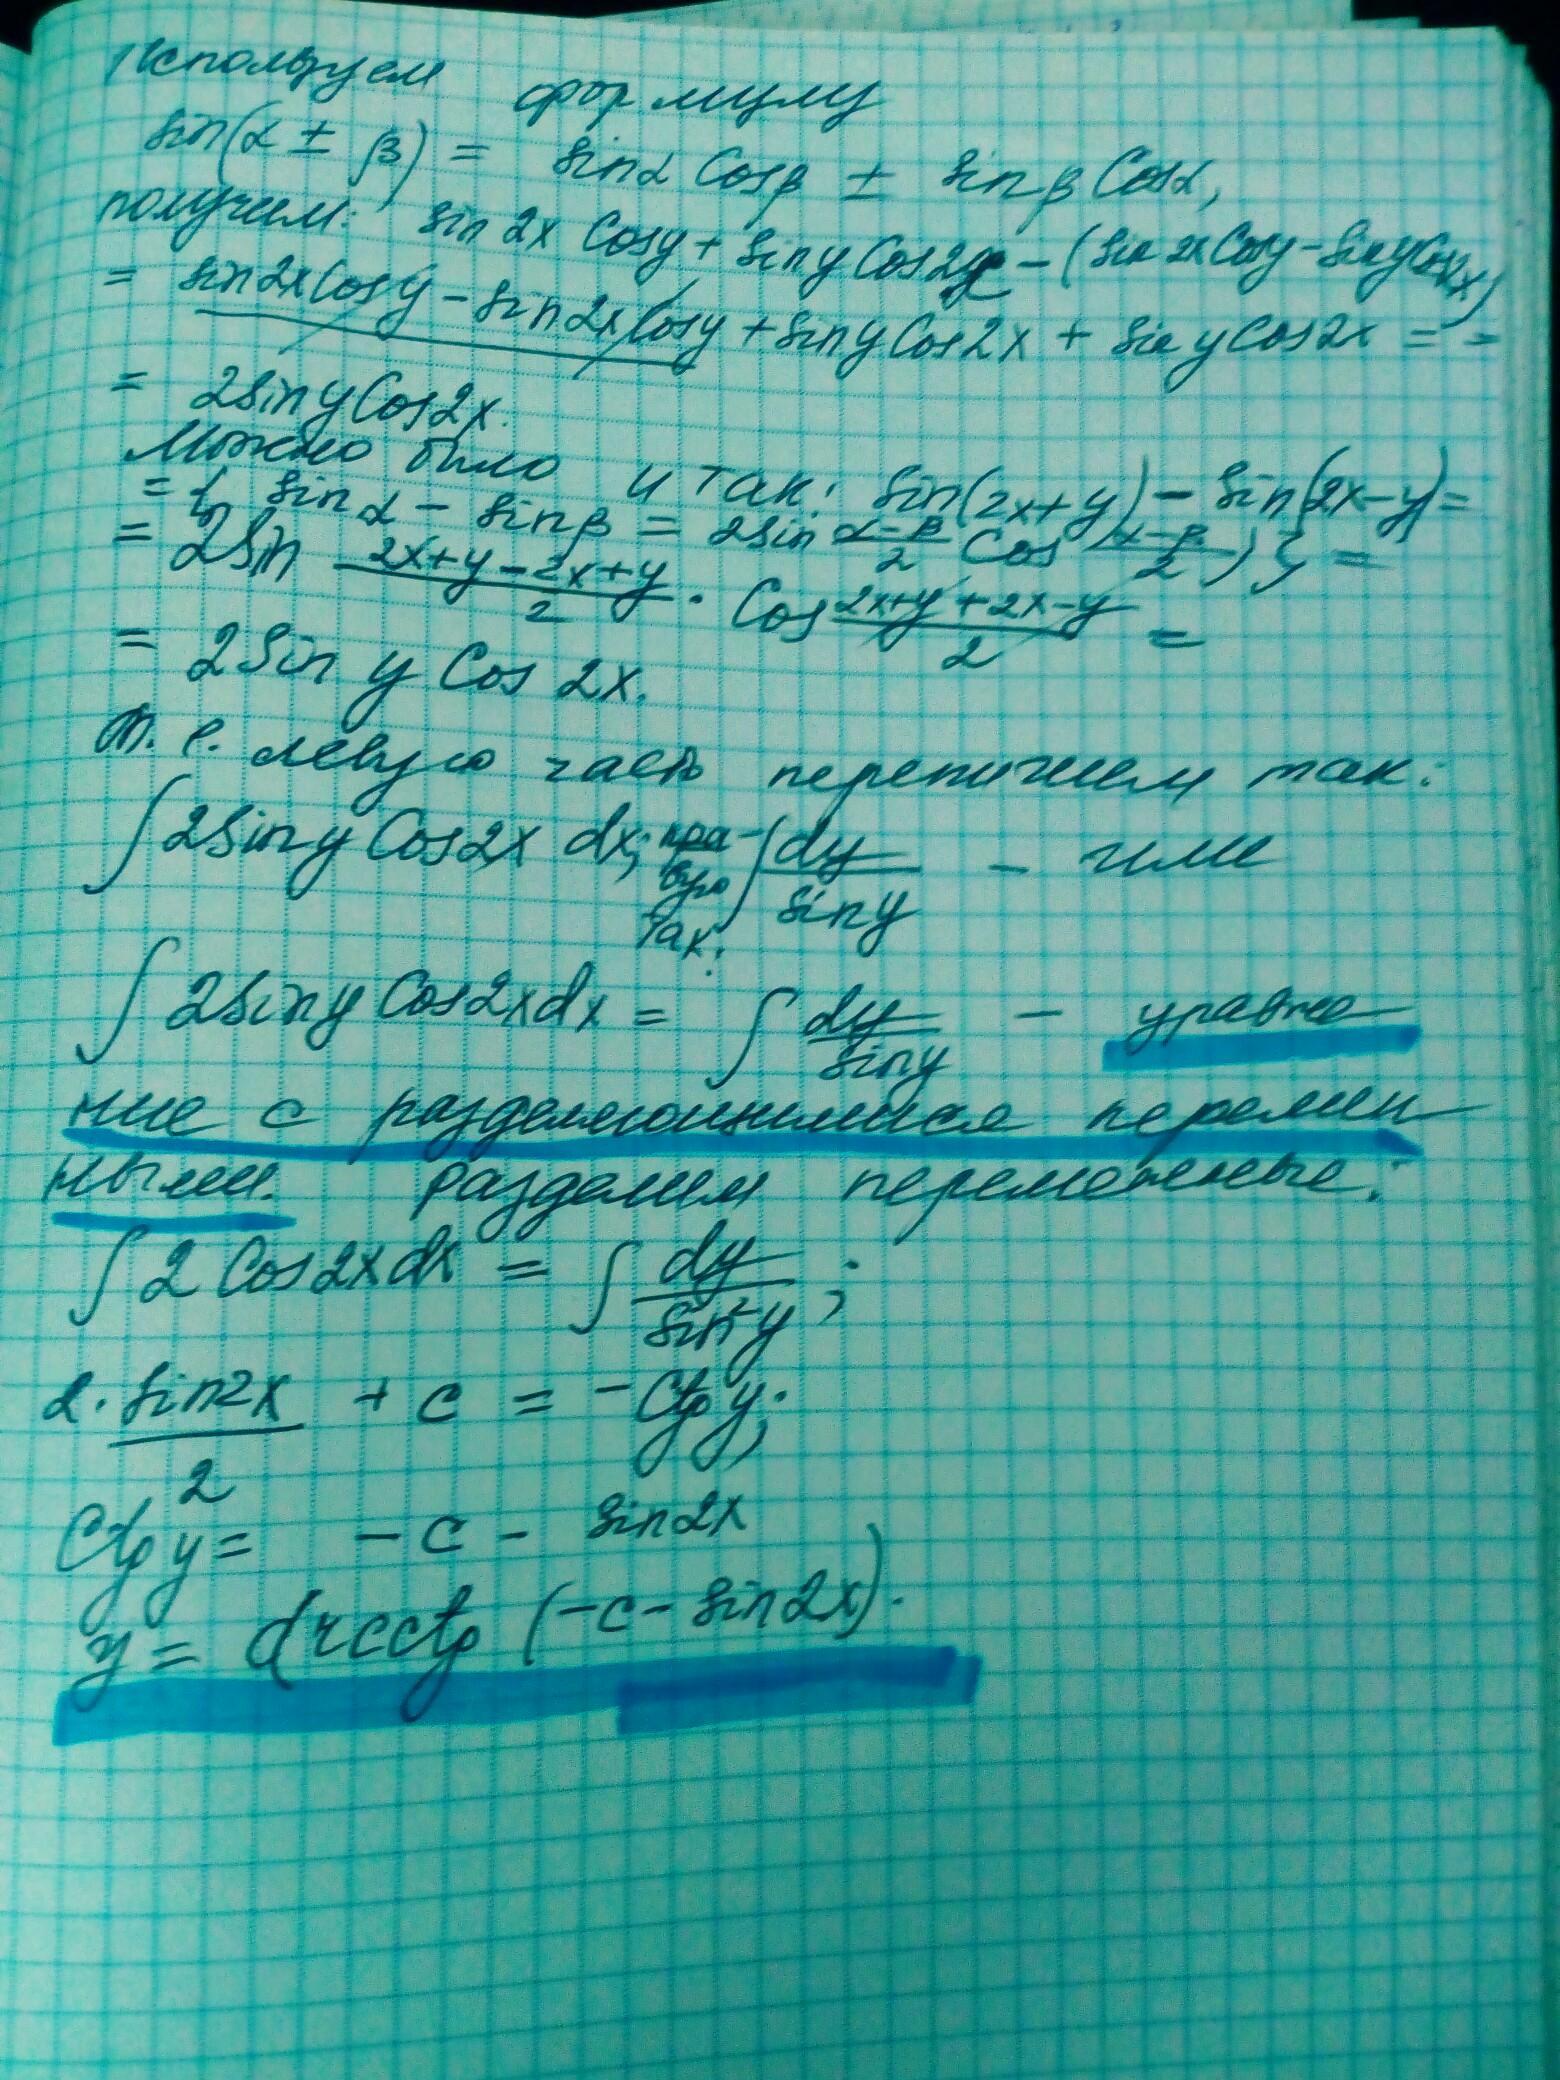 Используем формулу
sin(α ± β) = sinα Cosβ ± sinβ Cosα,
получим: sin 2x Cosy + siny Cos2x - (sin 2x Cosy - siny Cos2x)
= sin2x Cosy - sin2x Cosy + siny Cos2x + siny Cos2x = =
= 2siny Cos2x.
Можно было и так: sin(2x+y) - sin(2x-y) =
= { sinα - sinβ = 2sin (α-β)/2 Cos (α-β)/2) } =
= 2sin (2x+y-2x+y)/2 · Cos (2x+y+2x-y)/2 =
= 2sin y Cos 2x.
Т. е. левую часть перепишем так:
∫ 2siny Cos2x dx; пра-вую так: ∫ dy/siny - или
∫ 2siny Cos2xdx = ∫ dy/siny - уравне
ние с разделяющимися перемен
ными. разделим переменные:
∫ 2 Cos2xdx = ∫ dy/sin²y ;
2 · sin2x/2 + c = -Ctg y;
Ctg y = -c - sin2x
y = arcctg (-c - sin2x).